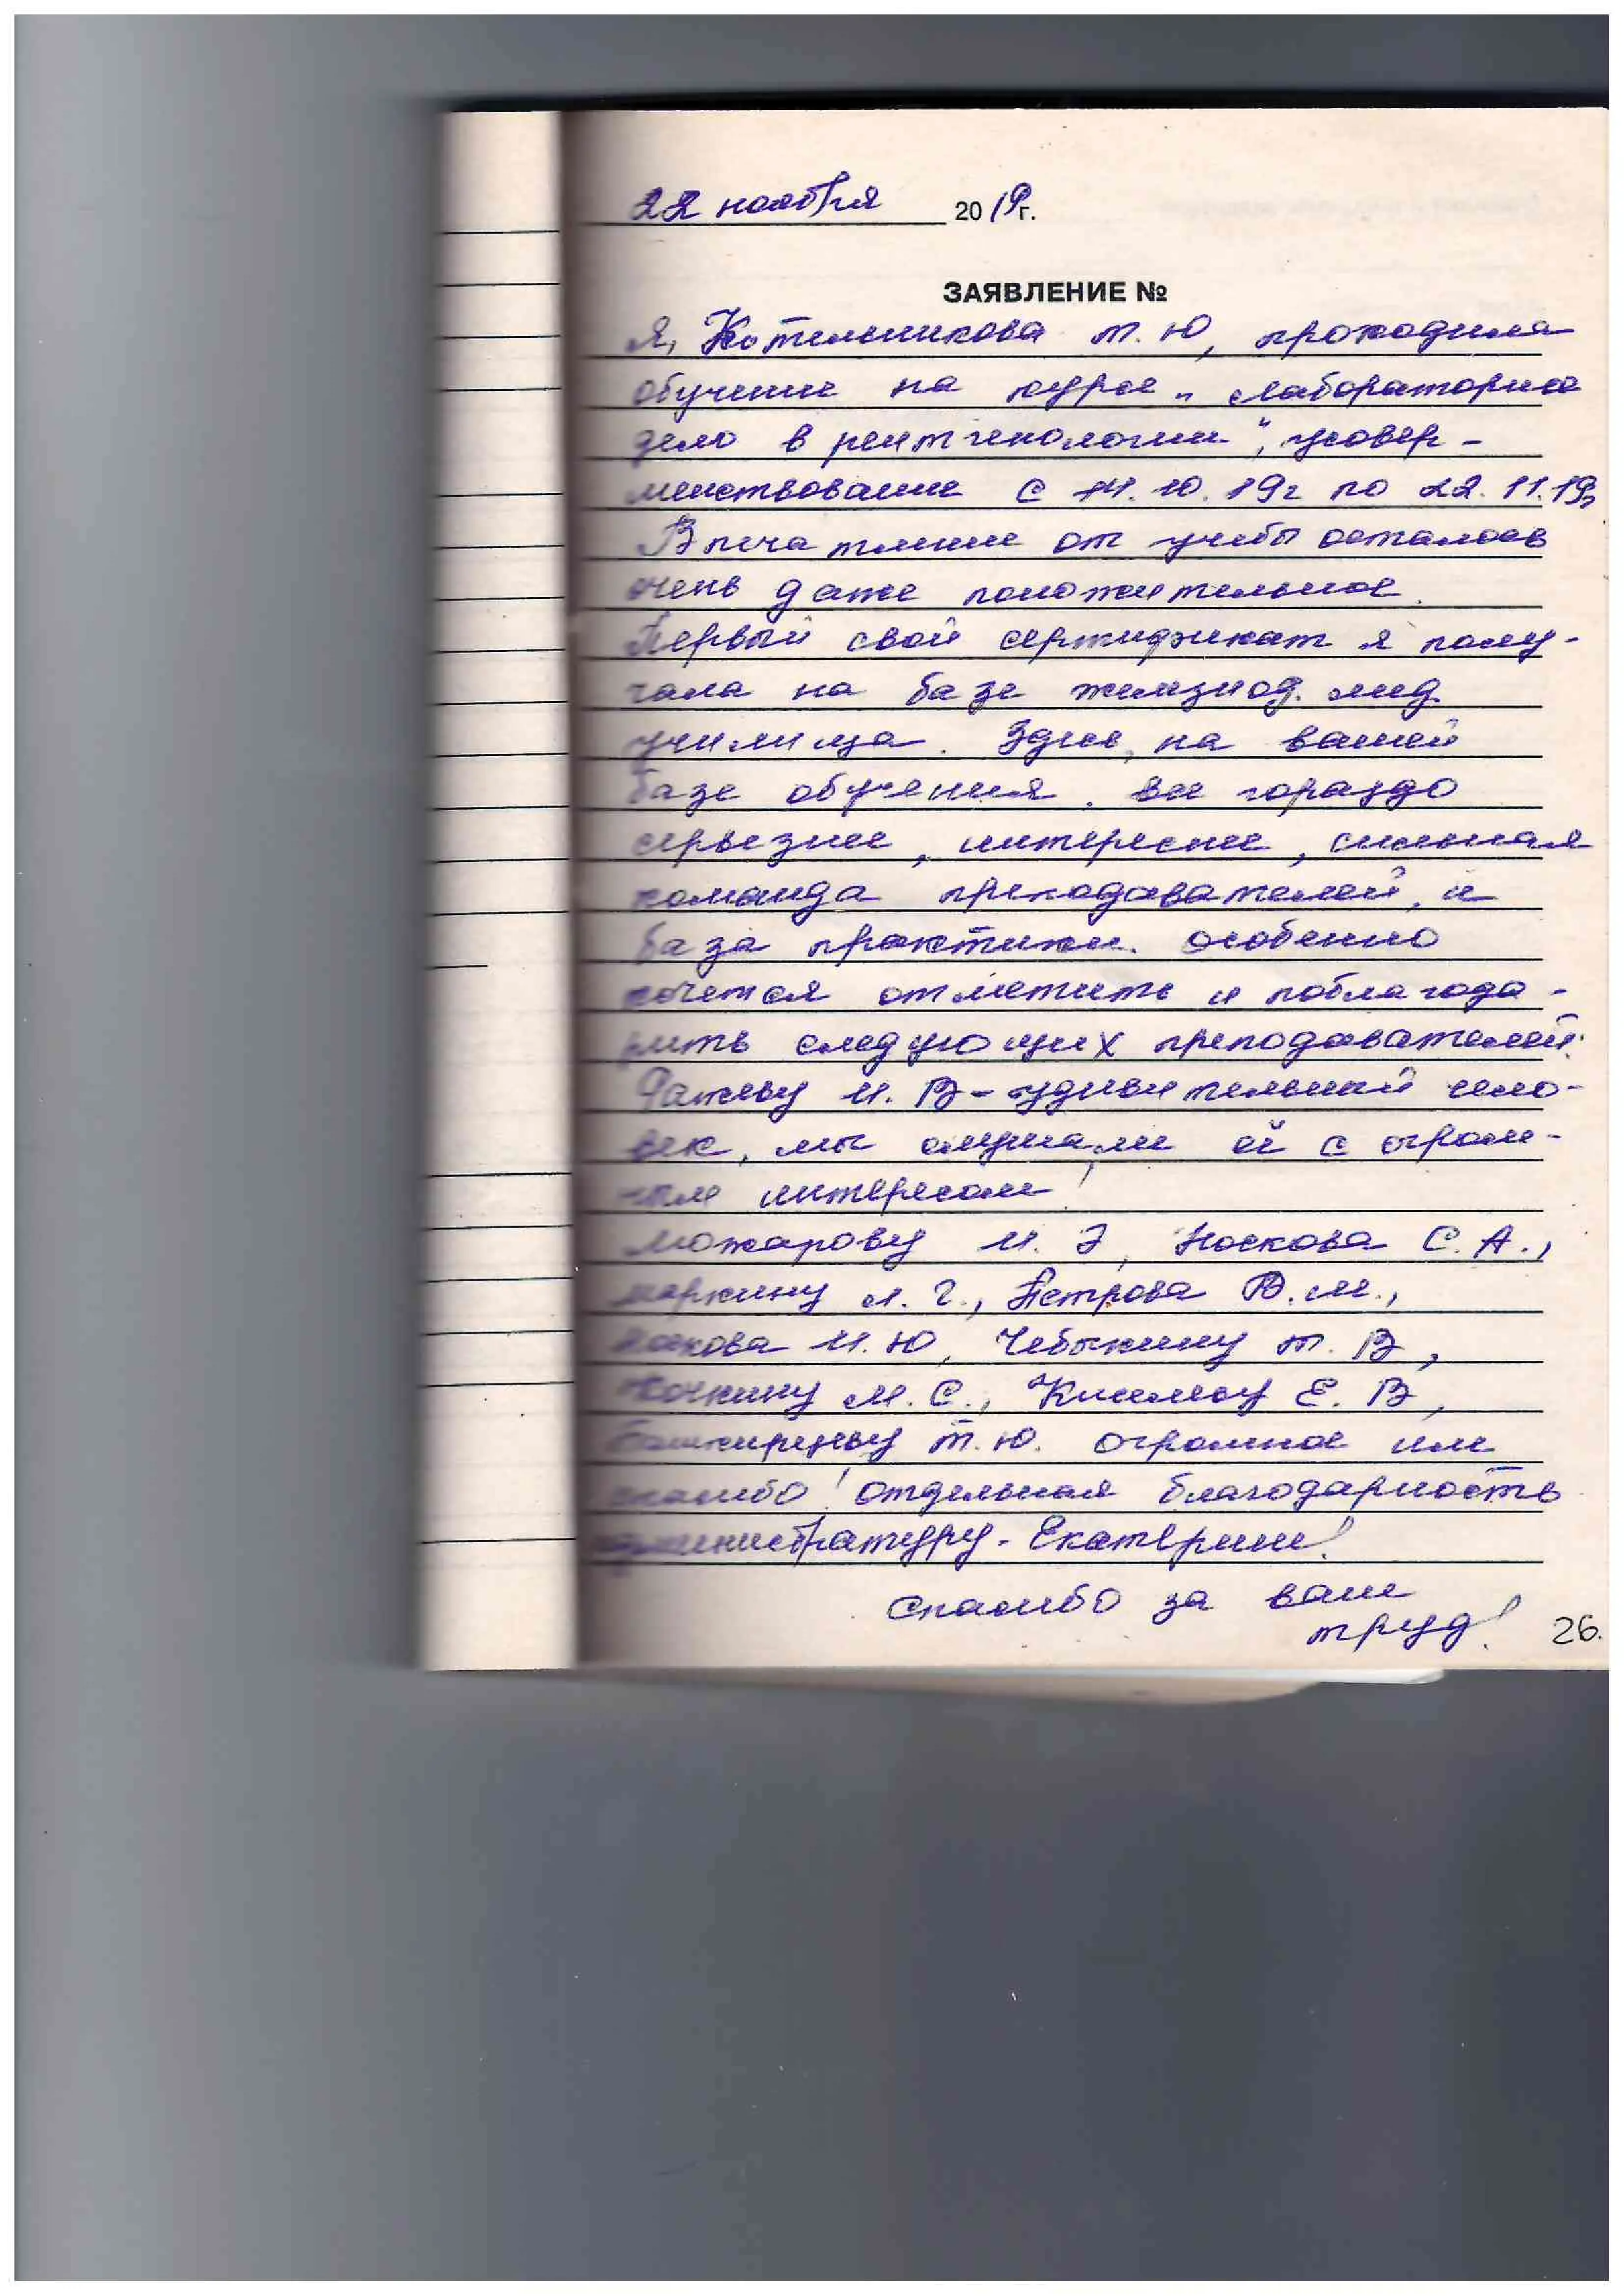 22 ноября 2019г.
ЗАЯВЛЕНИЕ №
Я, Котельникова Т. Ю, проходила
обучение на курсе „Лабораторное
дело в рентгенологии“, усовер-
шенствование с 14.10.19г по 22.11.19г
Впечатление от учебы осталось
очень даже положительное.
Первый свой сертификат я полу-
чала на базе железнод. мед
училища. Здесь, на вашей
базе обучения, все гораздо
серьезнее, интереснее, сильная
команда преподавателей, и
база практики. Особенно
хочется отметить и поблагода-
рить следующих преподавателей:
И. В - удивительный чело-
век, мы слушали ей с огром-
ным интересом!
Можарову И. Э, Носкова С. А.,
Маркину Л. Г., Петрова В. М.,
Носкова И. Ю, Чебыкину Т. В,
Кочкину М. С., Киселеву Е. В,
Башкирцеву Т. Ю. огромное им
спасибо! отдельная благодарность
администратуру - Екатерине!
Спасибо за ваш
труд!
26.